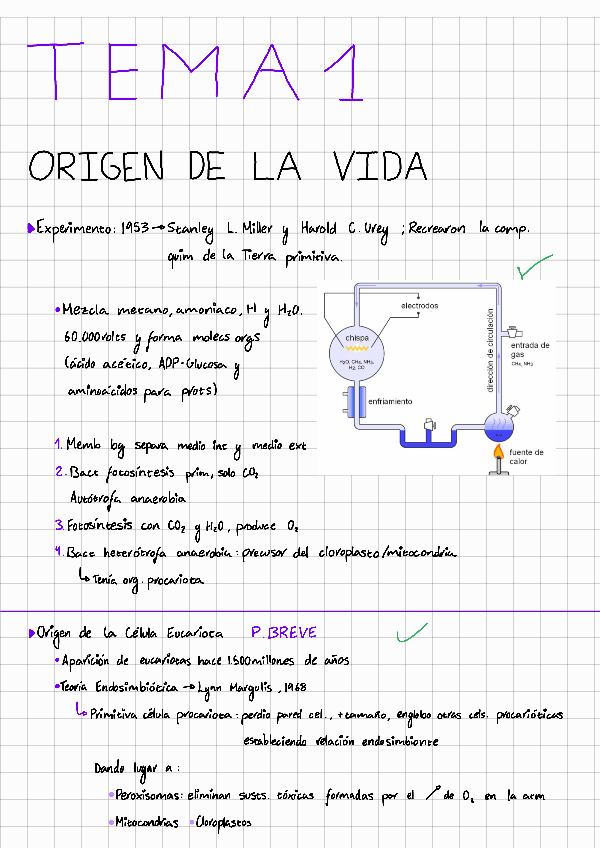 TEMA 1
ORIGEN DE LA VIDA
Experimento: 1953 → Stanley L. Miller y Harold C. Urey ; Recrearon la comp.
quim de la Tierra primitiva.
• Mezcla metano, amoniaco, H y H2O.
60.000volts y forma molecs orgs
(ácido acético, ADP-Glucosa y
aminoácidos para prots)
electrodos
chispa
H2O, CH4, NH3,
H2, CO
dirección de circulación
entrada de
gas
CH4, NH3
enfriamiento
fuente de
calor
1. Memb log separa medio int y medio ext
2. Bact fotosíntesis prim, solo CO2
Autótrofa anaerobia
3. Fotosíntesis con CO2 y H2O, produce O2
4. Bact heterótrofa anaerobia: precursor del cloroplasto/mitocondria
↳ Tenía org. procariota
Origen de la Célula Eucariota P. BREVE
• Aparición de eucariotas hace 1.500 millones de años
• Teoría Endosimbiótica → Lynn Margulis, 1968
↳ Primitiva célula procariota: perdio pared cel., +tamaño, englobo otras cels. procarióticas
estableciendo relación endosimbionte
Dando lugar a:
• Peroxisomas: eliminan susts. tóxicas formadas por el ↗ de O2 en la atm
• Mitocondrias • Cloroplastos